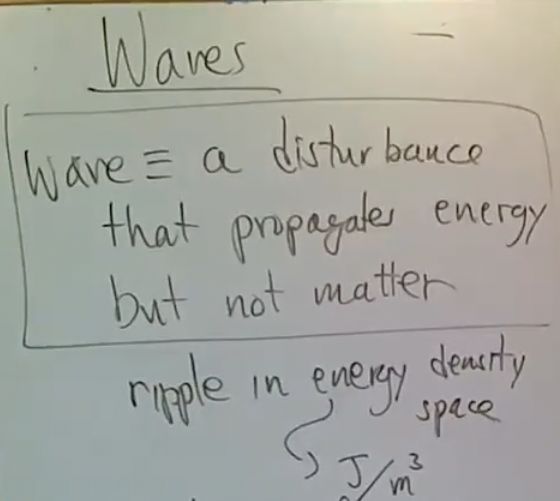 Waves
Wave ≡ a disturbance
that propagates energy
but not matter
ripple in energy density
space
J/m³